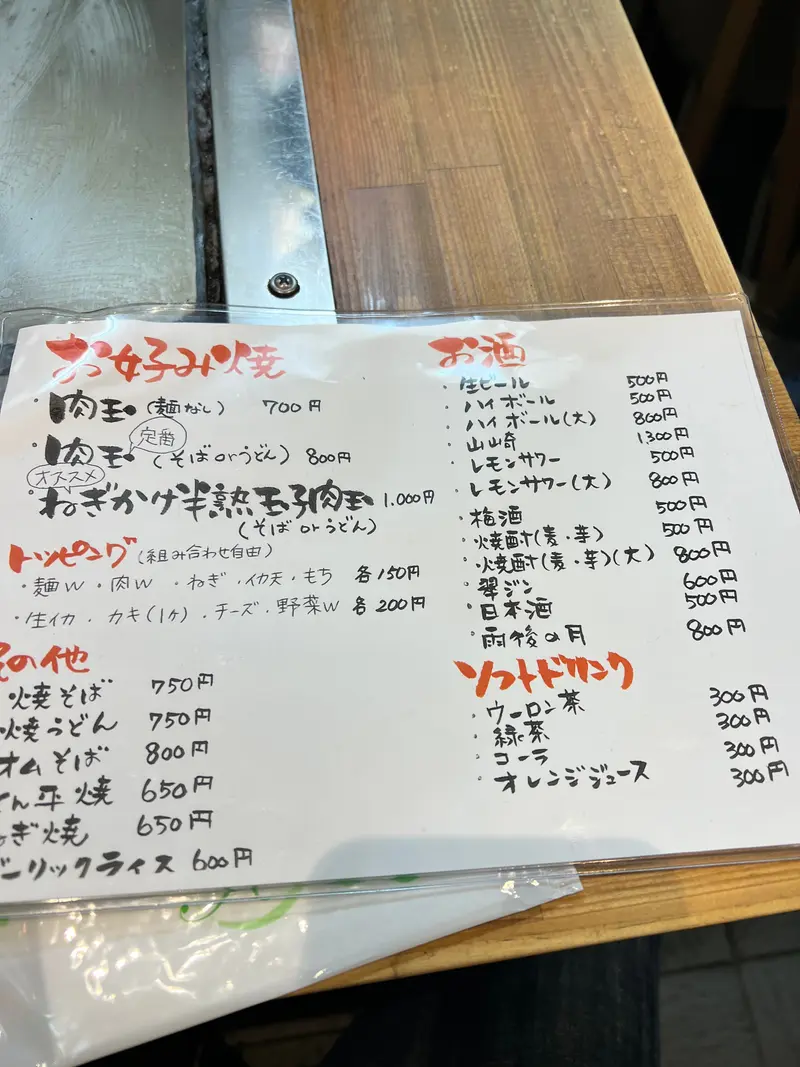 お好み焼
・肉玉(麺なし) 700円
定番
・肉玉(そばorうどん) 800円
オススメ
・ねぎかけ半熟玉子肉玉 1.000円
(そば or うどん)
トッピング(組み合わせ自由)
・麺W・肉W・ねぎ・イカ天・もち 各150円
・生イカ・カキ(1ヶ)・チーズ・野菜W 各200円
その他
焼そば 750円
焼うどん 750円
オムそば 800円
とん平焼 650円
ねぎ焼 650円
ガーリックライス 600円
お酒
・生ビール 500円
・ハイボール 500円
・ハイボール(大) 800円
・山崎 1300円
・レモンサワー 500円
・レモンサワー(大) 800円
・梅酒 500円
・焼酎(麦・芋) 500円
・焼酎(麦・芋)(大) 800円
・翠ジン 600円
・日本酒 500円
・雨後の月 800円
ソフトドリンク
・ウーロン茶 300円
・緑茶 300円
・コーラ 300円
・オレンジジュース 300円